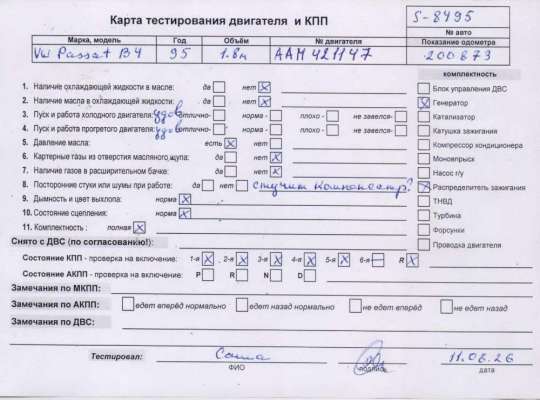 Карта тестирования двигателя и КПП
S-8495
№ авто
Марка, модель Год Объём № двигателя Показание одометра
VW Passat B4 95 1.8м AAM 421147 200873
комплектность
1. Наличие охлаждающей жидкости в масле: да нет X
2. Наличие масла в охлаждающей жидкости: да нет X
3. Пуск и работа холодного двигателя: удов отлично- норма - плохо - не завелся-
4. Пуск и работа прогретого двигателя: удов отлично- норма - плохо - не завелся-
5. Давление масла: есть X нет
6. Картерные газы из отверстия масляного щупа: да нет X
7. Наличие газов в расширительном бачке: да нет X
8. Посторонние стуки или шумы при работе: да нет стучит компенсатр?
9. Дымность и цвет выхлопа: норма X
10. Состояние сцепления: норма X
11. Комплектность: полная X
Блок управления ДВС
X Генератор
Катализатор
Катушка зажигания
Компрессор кондиционера
Моновпрыск
Насос г/у
X Распределитель зажигания
ТНВД
Турбина
Форсунки
Проводка двигателя
Снято с ДВС (по согласованию!):
Состояние КПП - проверка на включение: 1-я X 2-я X 3-я X 4-я X 5-я X 6-я — R X
Состояние АКПП - проверка на включение: P R N D
Замечания по МКПП:
Замечания по АКПП: едет вперёд нормально едет назад нормально не едет вперёд не едет назад
Замечания по ДВС:
Тестировал: Саша 11.08.26
ФИО подпись дата